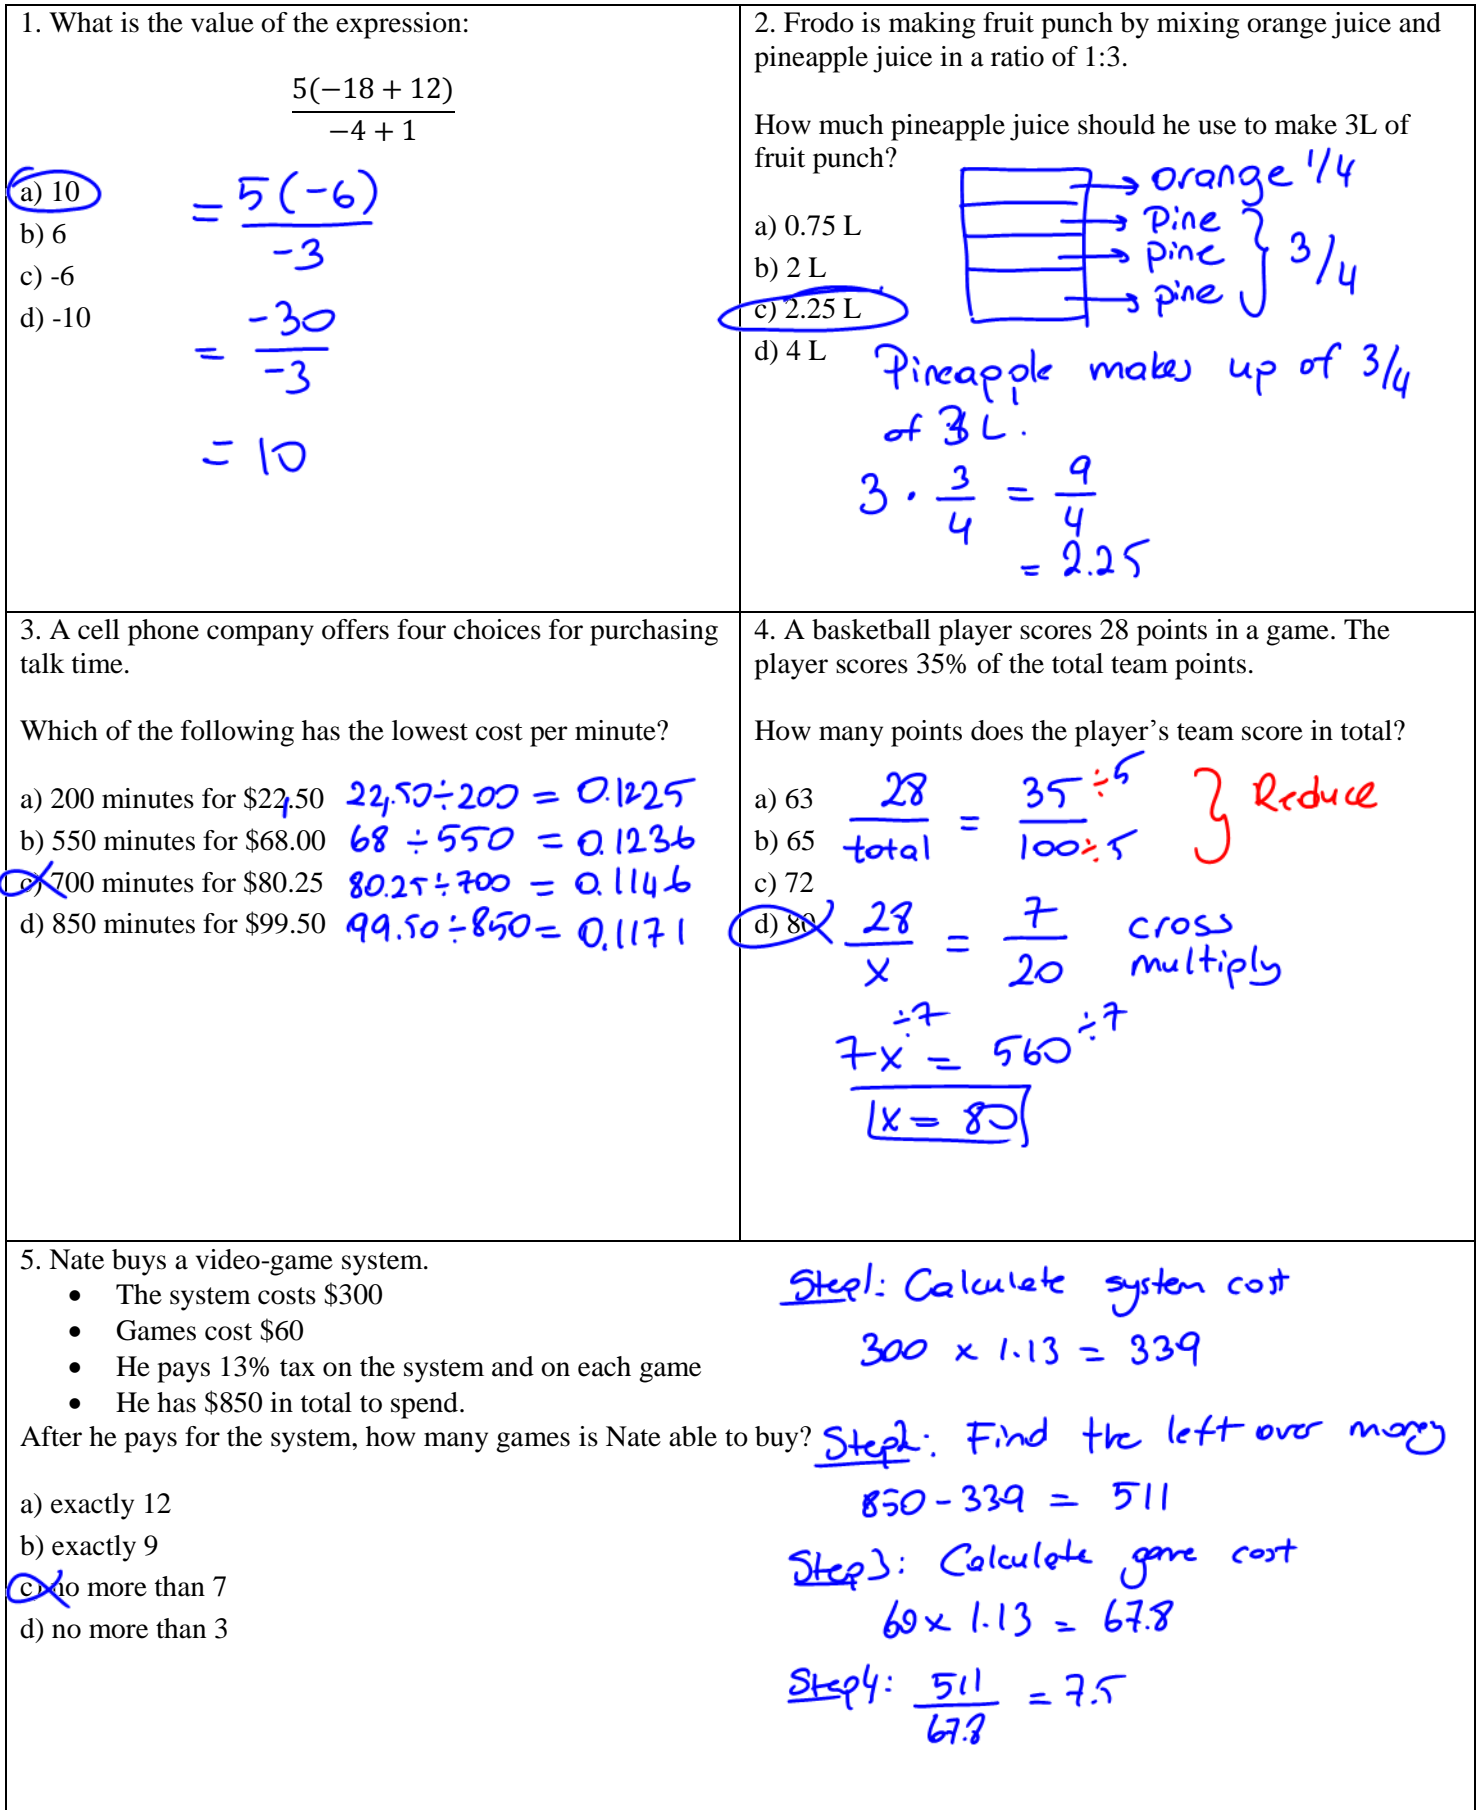 1. What is the value of the expression:
5(−18 + 12)
−4 + 1
a) 10
b) 6
c) -6
d) -10
= 5(-6)
-3
= -30
-3
= 10
2. Frodo is making fruit punch by mixing orange juice and
pineapple juice in a ratio of 1:3.
How much pineapple juice should he use to make 3L of
fruit punch?
a) 0.75 L
b) 2 L
c) 2.25 L
d) 4 L
orange 1/4
Pine
pine
pine
} 3/4
Pineapple makes up of 3/4
of 3 L.
3 · 3/4 = 9/4
= 2.25
3. A cell phone company offers four choices for purchasing
talk time.
Which of the following has the lowest cost per minute?
a) 200 minutes for $22.50 22.50÷200 = 0.1225
b) 550 minutes for $68.00 68 ÷ 550 = 0.1236
c) 700 minutes for $80.25 80.25÷700 = 0.1146
d) 850 minutes for $99.50 99.50÷850 = 0.1171
4. A basketball player scores 28 points in a game. The
player scores 35% of the total team points.
How many points does the player’s team score in total?
a) 63
b) 65
c) 72
d) 80
28/total = 35÷5/100÷5 } Reduce
28/x = 7/20 cross
multiply
÷7 ÷7
7x = 560
x = 80
5. Nate buys a video-game system.
• The system costs $300
• Games cost $60
• He pays 13% tax on the system and on each game
• He has $850 in total to spend.
After he pays for the system, how many games is Nate able to buy?
a) exactly 12
b) exactly 9
c) no more than 7
d) no more than 3
Step1: Calculate system cost
300 x 1.13 = 339
Step2: Find the left over money
850 - 339 = 511
Step3: Calculate game cost
60 x 1.13 = 67.8
Step4: 511/67.8 = 7.5